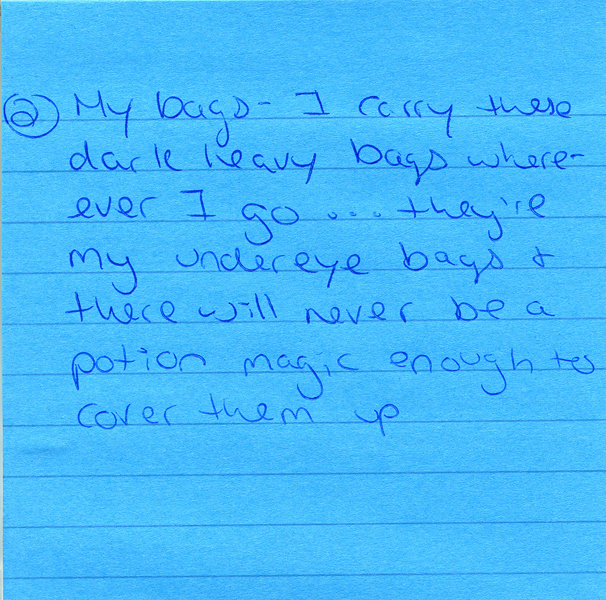 ② My bags - I carry these
dark heavy bags where-
ever I go ... they're
my undereye bags &
there will never be a
potion magic enough to
cover them up